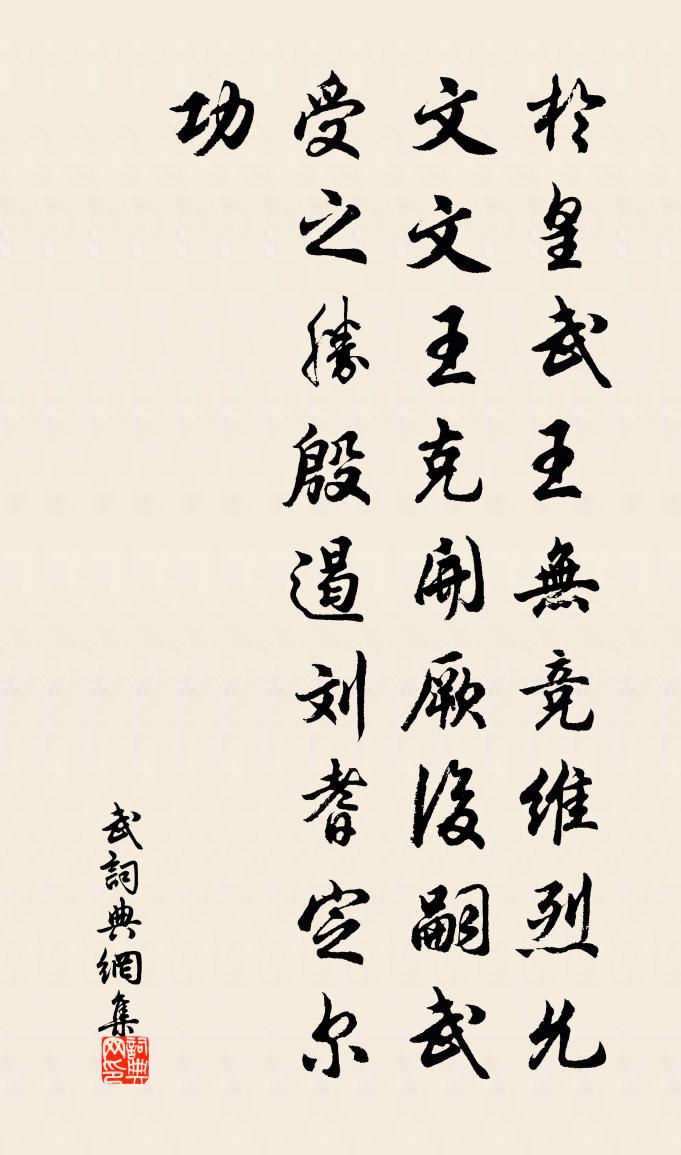 於皇武王無竞維烈允
文文王克開厥後嗣武
受之勝殷遏刘耆定尔
功
武詞典網集
詞典网印